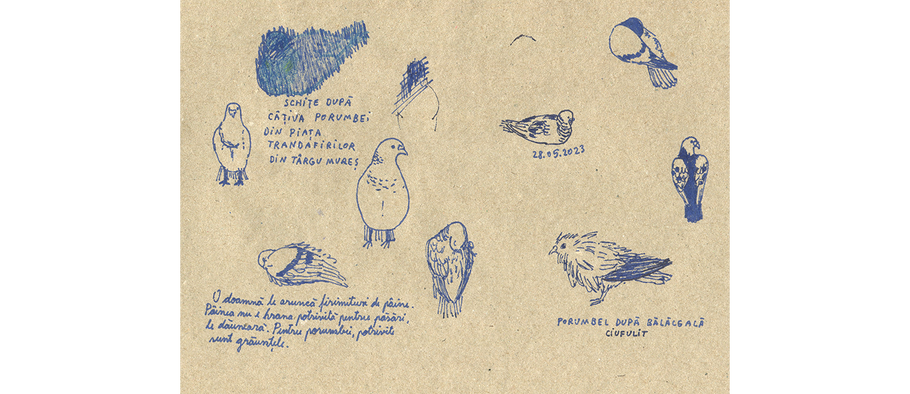 SCHIȚE DUPĂ
CÂȚIVA PORUMBEI
DIN PIAȚA
TRANDAFIRILOR
DIN TÂRGU MUREȘ
28.05.2023
O doamnă le aruncă firimituri de pâine.
Pâinea nu e hrana potrivită pentru păsări,
le dăunează. Pentru porumbei, potrivite
sunt grăunțele.
PORUMBEL DUPĂ BĂLĂCEALĂ
CIUFULIT